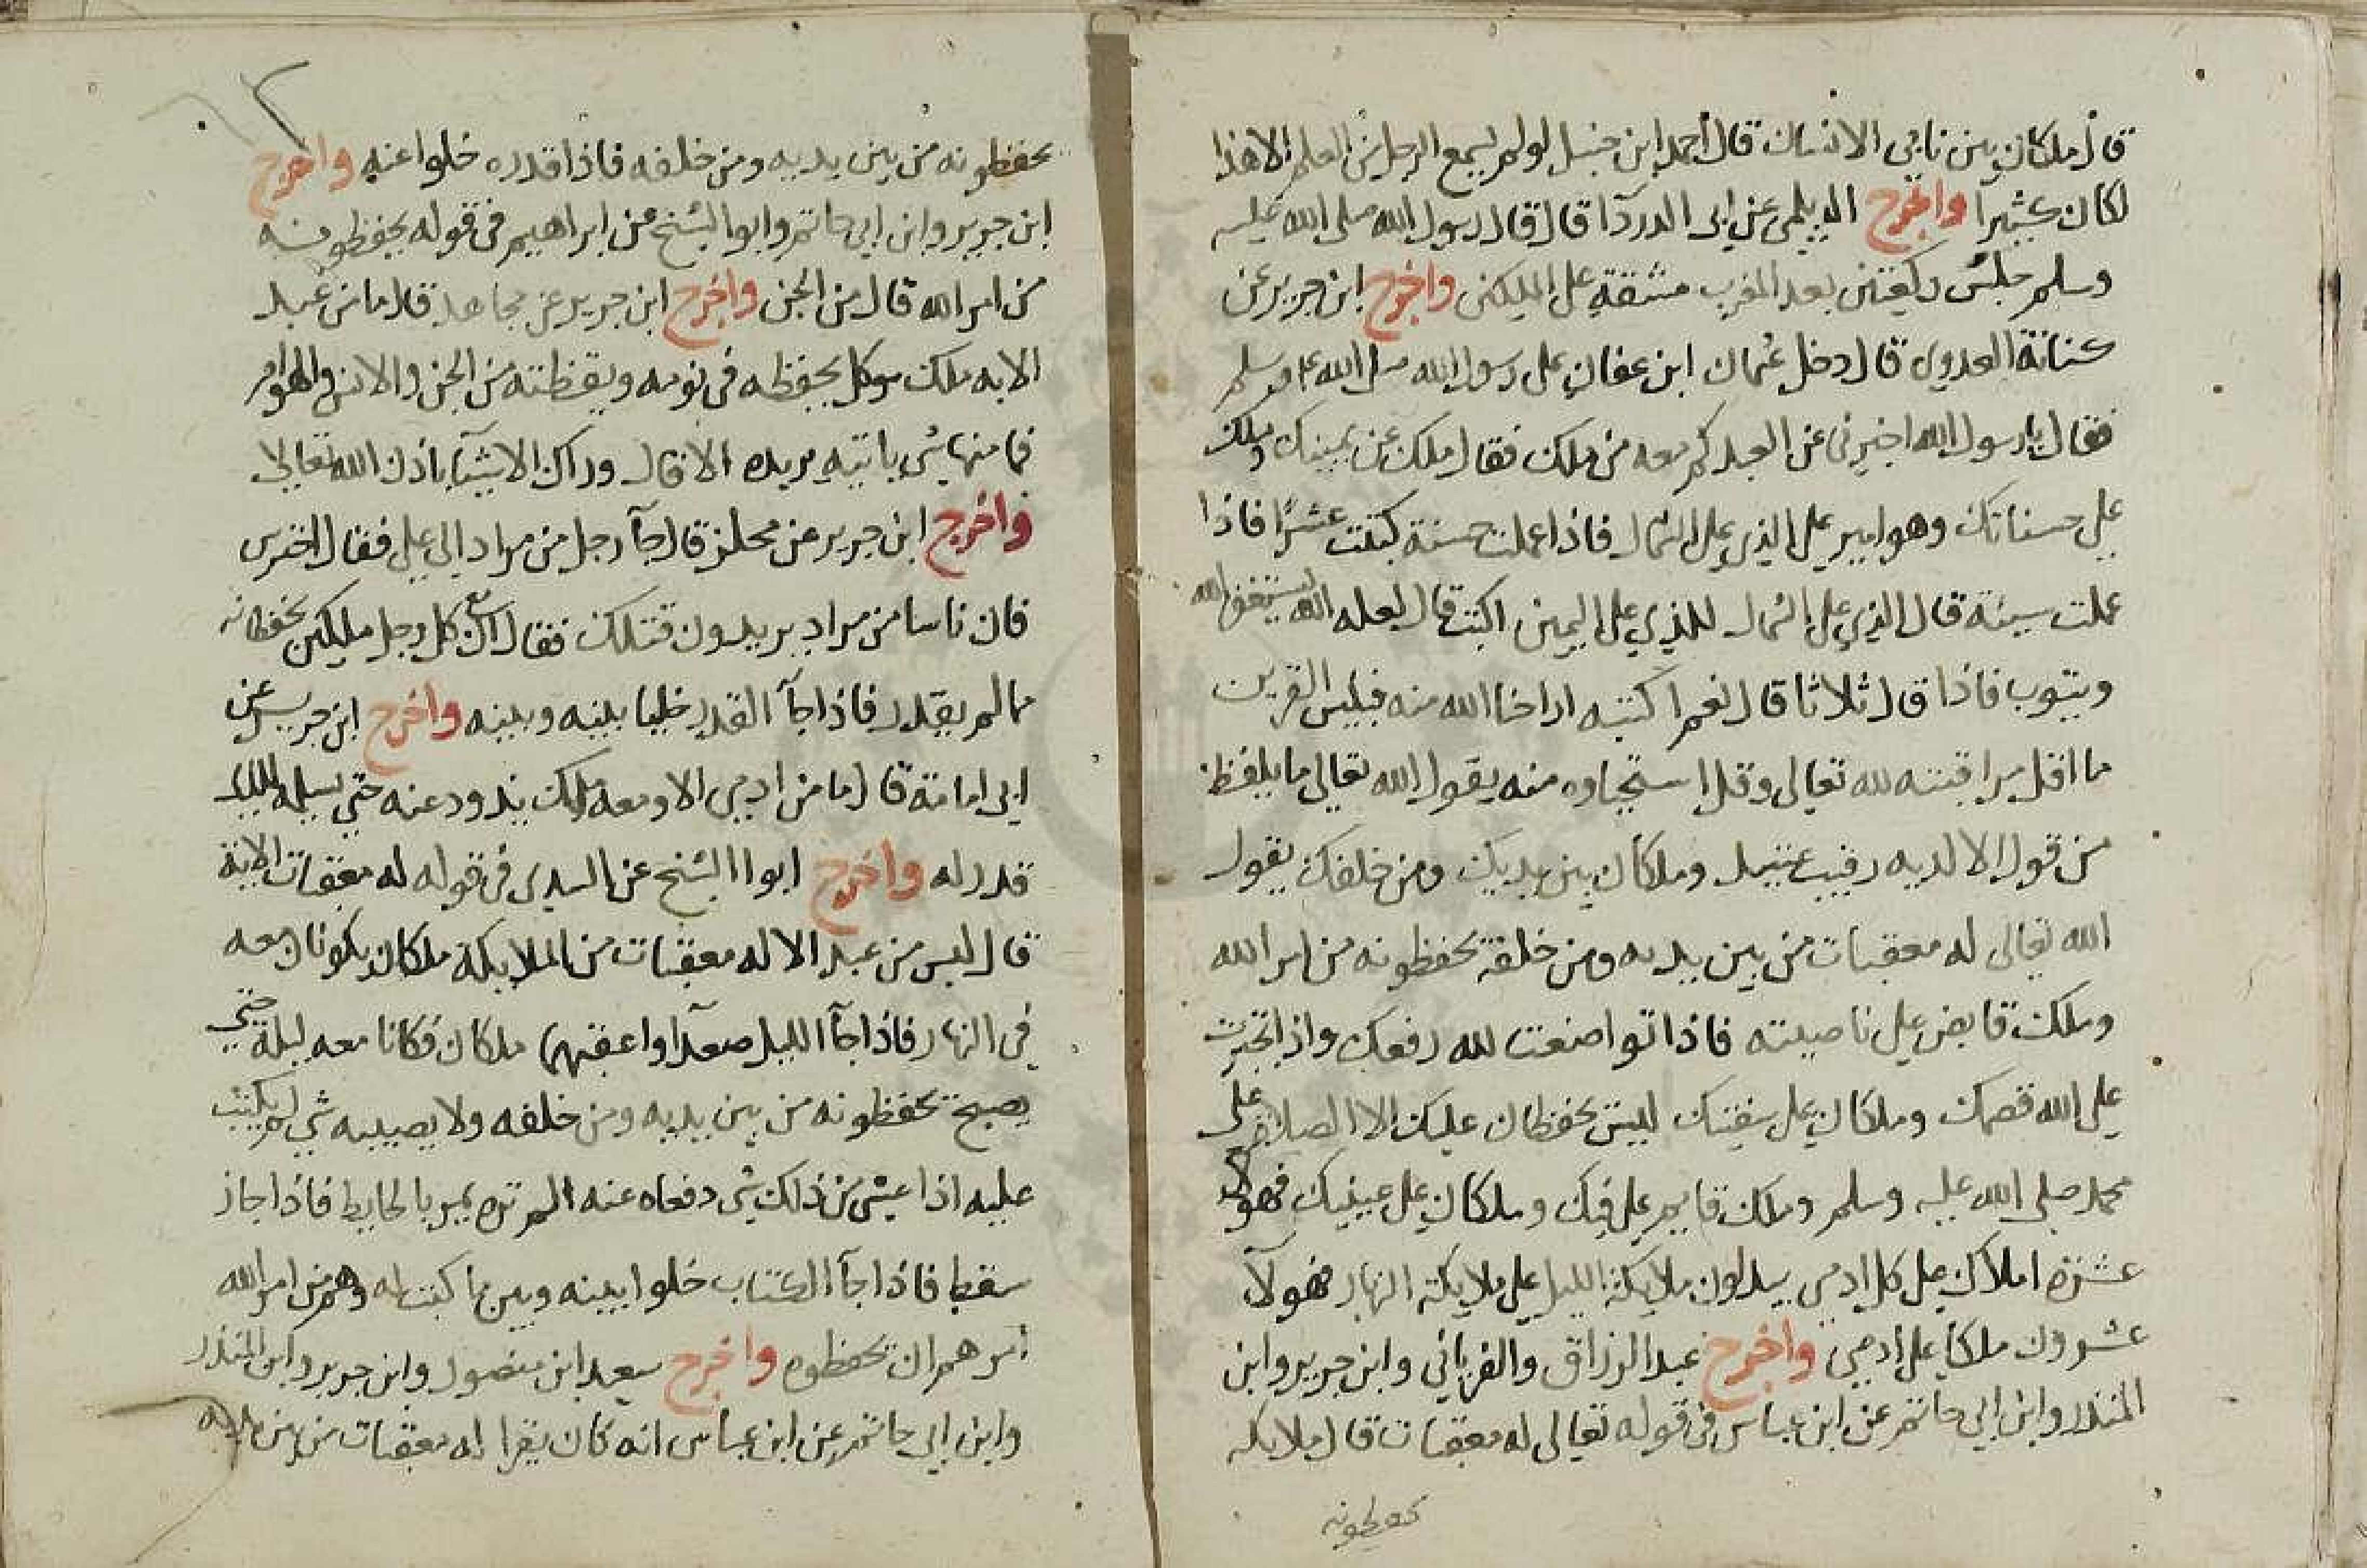 قال ملكان بين نابي الانسان قال احمد ابن حنبل لو لم يسمع الرجل من العلم الا هذا
لكان كثيرا واخرج الديلمي عن ابي الدردآ قال قال رسول الله صلى الله عليه
وسلم جلس ركعتين بعد المغرب مشقة على الملكين واخرج ابن جرير عن
كنانة العدوي قال دخل عثمان ابن عفان على رسول الله صلى الله عليه وسلم
فقال يا رسول الله اخبرني عن العبد كم معه من ملك فقال ملك عن يمينك وملك
على حسناتك وهو امير على الذي على الشمال فاذا عملت حسنة كتبت عشرًا فاذا
عملت سيئة قال الذي على الشمال للذي على اليمين اكتب قال لعله الله يستغفر الله
ويتوب فاذا قال ثلاثا قال نعم اكتبه اراحنا الله منه فبيس القرين
ما اقل مراقبته لله تعالى وقل استحياوه منه يقول الله تعالى ما يلفظ
من قول الا لديه رقيب عتيد وملكان بين يديك ومن خلفك يقول
الله تعالى له معقبات من بين يديه ومن خلفه يحفظونه من امر الله
وملك قابض على ناصيته فاذا تواضعت لله رفعك واذا تجبرت
على الله قصمك وملكان على شفتك ليس يحفظان عليك الا الصلاة على
محمد صلى الله عليه وسلم وملك قايم على فيك وملكان على عينيك فهولا
عشرة املاك على كل ادمي يبدلون ملايكة الليل على ملايكة النهار فهولآ
عشرون ملكا على ادمي واخرج عبد الرزاق والفريابي وابن جرير وابن
المنذر وابن ابي حاتم عن ابن عباس في قوله تعالى له معقبات قال ملايكه
يحفظونه
يحفظونه من بين يديه ومن خلفه فاذا قدره خلوا عنه واخرج
ابن جرير وابن ابي حاتم وابو الشيخ عن ابراهيم في قوله يحفظونه
من امر الله قال من الجن واخرج ابن جرير عن مجاهد قال ما من عبد
الا به ملك موكل يحفظه في نومه ويقظته من الجن والانس والهوام
فما منها شي ياتيه يريده الا قال وراك الا شيآ باذن الله تعالى
واخرج ابن جرير عن مجلز قال جآ رجل من مراد الى علي فقال احترس
فان ناسا من مراد يريدون قتلك فقال ان مع كل رجل مليكين يحفظانه
مما لم يقدر فاذا جآ القدر خليا بينه وبينه واخرج ابن جرير عن
ابي امامة قال ما من ادمي الا ومعه ملك يذود عنه حتى يسلمه للذي
قدر له واخرج ابوا الشيخ عن السدي في قوله له معقبات الاية
قال ليس من عبد الا له معقبات من الملايكة ملكان يكونان معه
في النهار فاذا جآ الليل صعدا واعقبهما ملكان فكانا معه ليلة حتى
يصبح يحفظونه من بين يديه ومن خلفه ولا يصيبه شي لم يكتب
عليه اذا غشي من ذلك شي دفعاه عنه الم تره يمر بالحايط فاذا جاز
سقط فاذا جآ الكتاب خلوا بينه وبين ما كتب له وهم من امر الله
امرهم ان يحفظوه واخرج سعيد ابن منصور وابن جرير وابن المنذر
وابن ابي حاتم عن ابن عباس انه كان يقرا له معقبات من بين يديه